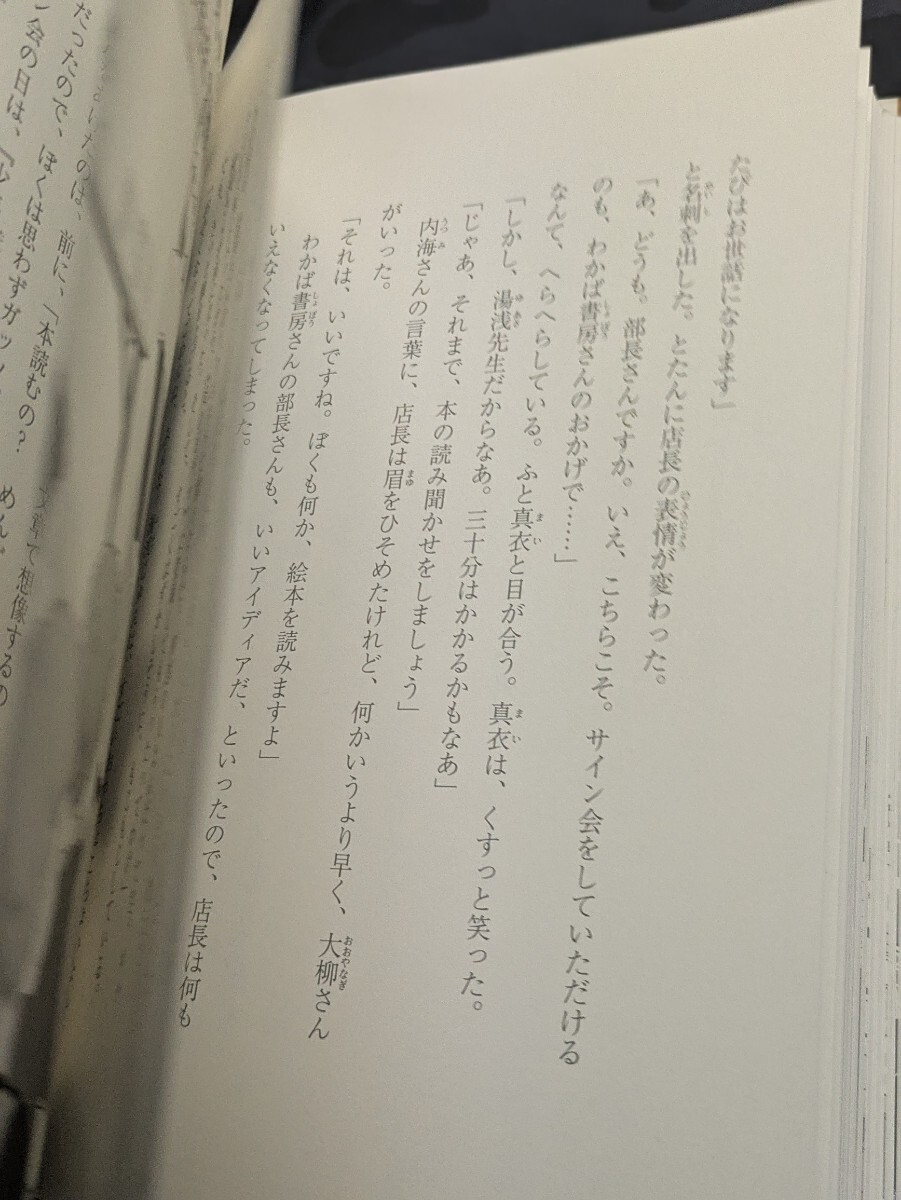 たびはお世話になります」
と名刺を出した。とたんに店長の表情が変わった。
「あ、どうも。部長さんですか。いえ、こちらこそ。サイン会をしていただける
のも、わかば書房さんのおかげで……」
なんて、へらへらしている。ふと真衣と目が合う。真衣は、くすっと笑った。
「しかし、湯浅先生だからなあ。三十分はかかるかもなあ」
「じゃあ、それまで、本の読み聞かせをしましょう」
内海さんの言葉に、店長は眉をひそめたけれど、何かいうより早く、大柳さん
がいった。
「それは、いいですね。ぼくも何か、絵本を読みますよ」
わかば書房さんの部長さんも、いいアイディアだ、といったので、店長は何も
いえなくなってしまった。
たのは、前に、「本読むの?
だったので、ぼくは思わずガッ
会の日は、
文章で想像するの
めん。